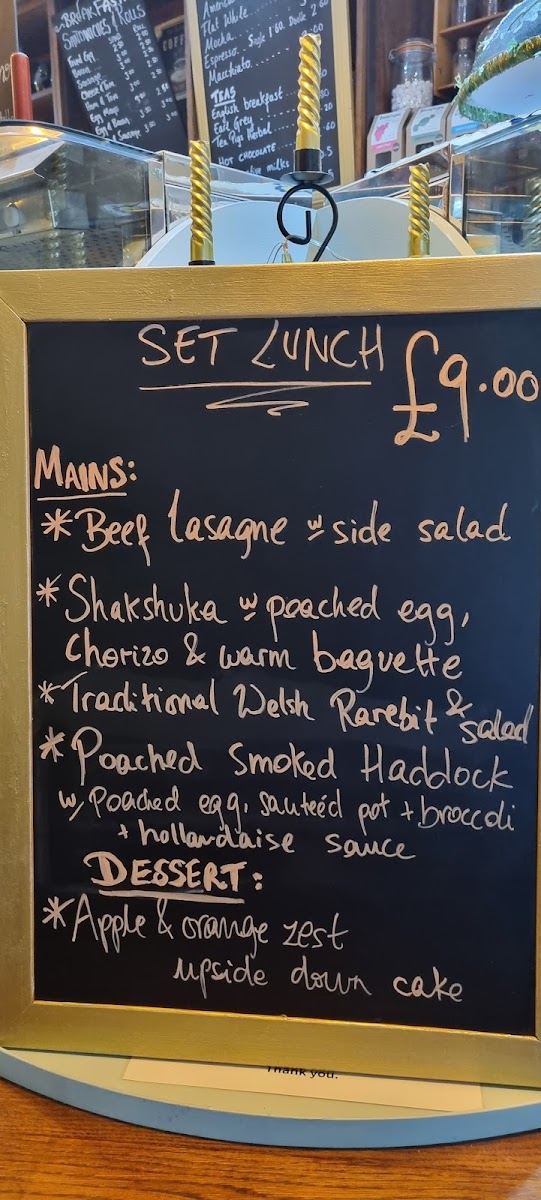 BREAKFAST
SANDWICHES / ROLLS
Fried Egg
Bacon
Sausage
Cheese & Tom
Ham & Tom
Egg Mayo
Egg & Bacon
& Sausage
Flat White
Mocha
Espresso Single 1.60 Double
Macchiato
TEAS
English breakfast
Earl Grey
Tea Pigs Herbal
HOT CHOCOLATE
milks
SET LUNCH £9.00
MAINS:
*Beef lasagne w side salad
*Shakshuka w poached egg,
Chorizo & warm baguette
*Traditional Welsh Rarebit & salad
*Poached Smoked Haddock
w/ Poached egg, sauteéd pot + broccoli
+ hollandaise sauce
DESSERT:
*Apple & orange zest
upside down cake
Thank you.